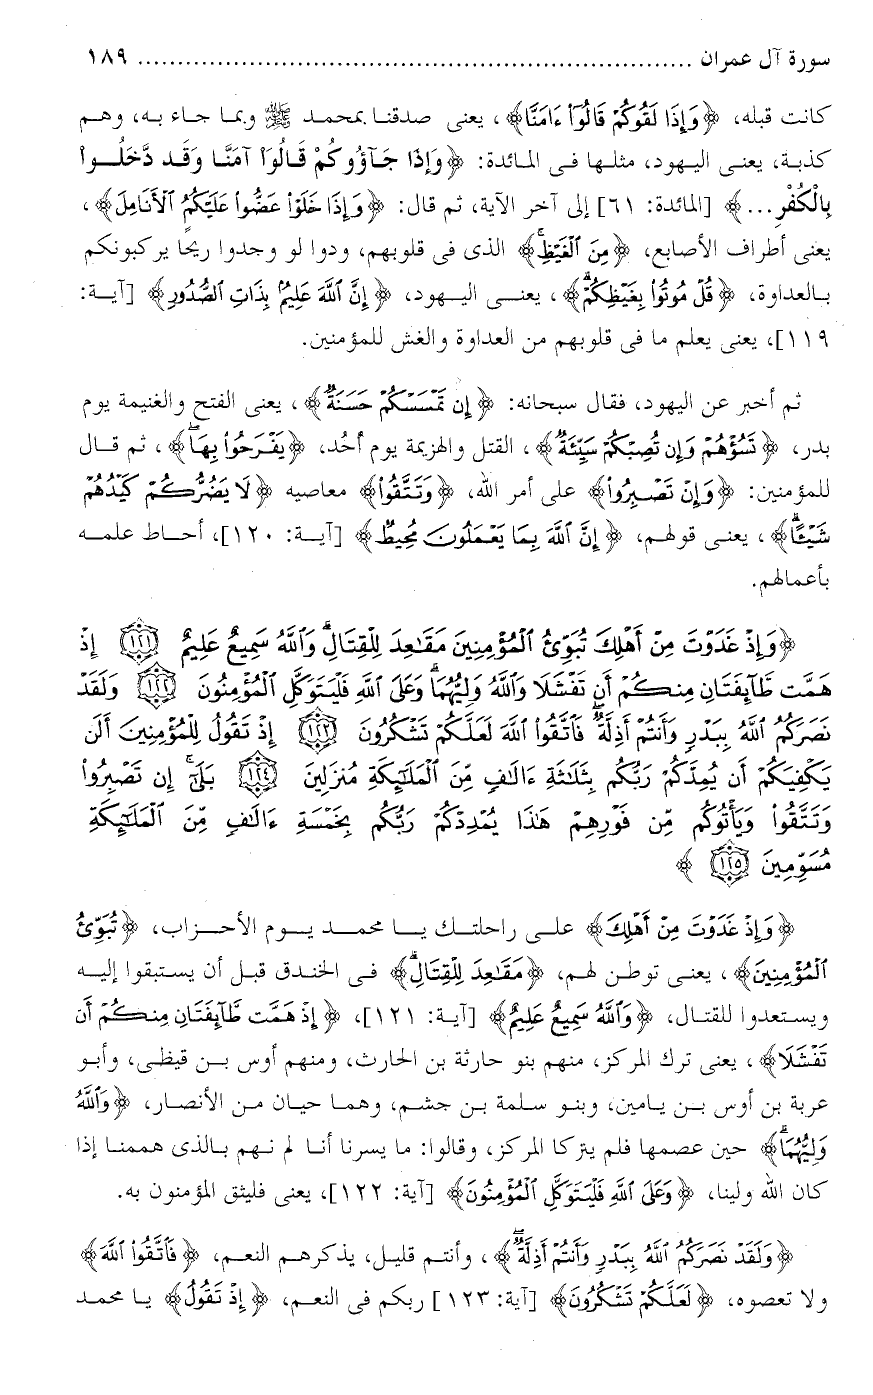 سورة آل عمران ...................................................................... ١٨٩
كانت قبله، ﴿وَإِذَا لَقُوكُمْ قَالُوٓا۟ ءَامَنَّا﴾، يعنى صدقنا بمحمد ﷺ وبما جاء به، وهم
كذبة، يعنى اليهود، مثلها فى المائدة: ﴿وَإِذَا جَآؤُوكُمْ قَالُوَاْ آمَنَّا وَقَد دَّخَلُواْ
بِالْكُفْرِ...﴾ [المائدة: ٦١] إلى آخر الآية، ثم قال: ﴿وَإِذَا خَلَوْا۟ عَضُّوا۟ عَلَيْكُمُ ٱلْأَنَامِلَ﴾،
يعنى أطراف الأصابع، ﴿مِنَ ٱلْغَيْظِ ۚ﴾ الذى فى قلوبهم، ودوا لو وجدوا ريحا يركبونكم
بالعداوة، ﴿قُلْ مُوتُوا۟ بِغَيْظِكُمْ ۗ﴾، يعنى اليهود، ﴿إِنَّ ٱللَّهَ عَلِيمٌۢ بِذَاتِ ٱلصُّدُورِ﴾ [آية:
١١٩]، يعنى يعلم ما فى قلوبهم من العداوة والغش للمؤمنين.
ثم أخبر عن اليهود، فقال سبحانه: ﴿إِن تَمْسَسْكُمْ حَسَنَةٌ﴾، يعنى الفتح والغنيمة يوم
بدر، ﴿تَسُؤْهُمْ وَإِن تُصِبْكُمْ سَيِّئَةٌ﴾، القتل والهزيمة يوم أُحُد، ﴿يَفْرَحُوا۟ بِهَا ۖ﴾، ثم قال
للمؤمنين: ﴿وَإِن تَصْبِرُوا۟﴾ على أمر الله، ﴿وَتَتَّقُوا۟﴾ معاصيه ﴿لَا يَضُرُّكُمْ كَيْدُهُمْ
شَيْـًٔا ۗ﴾، يعنى قولهم، ﴿إِنَّ ٱللَّهَ بِمَا يَعْمَلُونَ مُحِيطٌ﴾ [آية: ١٢٠]، أحاط علمه
بأعمالهم.
﴿وَإِذْ غَدَوْتَ مِنْ أَهْلِكَ تُبَوِّئُ ٱلْمُؤْمِنِينَ مَقَٰعِدَ لِلْقِتَالِ ۗ وَٱللَّهُ سَمِيعٌ عَلِيمٌ ١٢١ إِذْ
هَمَّت طَّآئِفَتَانِ مِنكُمْ أَن تَفْشَلَا وَٱللَّهُ وَلِيُّهُمَا ۗ وَعَلَى ٱللَّهِ فَلْيَتَوَكَّلِ ٱلْمُؤْمِنُونَ ١٢٢ وَلَقَدْ
نَصَرَكُمُ ٱللَّهُ بِبَدْرٍ وَأَنتُمْ أَذِلَّةٌ ۖ فَٱتَّقُوا۟ ٱللَّهَ لَعَلَّكُمْ تَشْكُرُونَ ١٢٣ إِذْ تَقُولُ لِلْمُؤْمِنِينَ أَلَن
يَكْفِيَكُمْ أَن يُمِدَّكُمْ رَبُّكُم بِثَلَٰثَةِ ءَالَٰفٍ مِّنَ ٱلْمَلَٰٓئِكَةِ مُنزَلِينَ ١٢٤ بَلَىٰٓ ۚ إِن تَصْبِرُوا۟
وَتَتَّقُوا۟ وَيَأْتُوكُم مِّن فَوْرِهِمْ هَٰذَا يُمْدِدْكُمْ رَبُّكُم بِخَمْسَةِ ءَالَٰفٍ مِّنَ ٱلْمَلَٰٓئِكَةِ
مُسَوِّمِينَ ١٢٥﴾
﴿وَإِذْ غَدَوْتَ مِنْ أَهْلِكَ﴾ على راحلتك يا محمد يوم الأحزاب، ﴿تُبَوِّئُ
ٱلْمُؤْمِنِينَ﴾، يعنى توطن لهم، ﴿مَقَٰعِدَ لِلْقِتَالِ ۗ﴾ فى الخندق قبل أن يستبقوا إليه
ويستعدوا للقتال، ﴿وَٱللَّهُ سَمِيعٌ عَلِيمٌ﴾ [آية: ١٢١]، ﴿إِذْ هَمَّت طَّآئِفَتَانِ مِنكُمْ أَن
تَفْشَلَا﴾، يعنى ترك المركز، منهم بنو حارثة بن الحارث، ومنهم أوس بن قيظى، وأبو
عربة بن أوس بن يامين، وبنو سلمة بن جشم، وهما حيان من الأنصار، ﴿وَٱللَّهُ
وَلِيُّهُمَا ۗ﴾ حين عصمها فلم يتركا المركز، وقالوا: ما يسرنا أنا لم نهم بالذى هممنا إذا
كان الله ولينا، ﴿وَعَلَى ٱللَّهِ فَلْيَتَوَكَّلِ ٱلْمُؤْمِنُونَ﴾ [آية: ١٢٢]، يعنى فليثق المؤمنون به.
﴿وَلَقَدْ نَصَرَكُمُ ٱللَّهُ بِبَدْرٍ وَأَنتُمْ أَذِلَّةٌ ۖ﴾، وأنتم قليل، يذكرهم النعم، ﴿فَٱتَّقُوا۟ ٱللَّهَ﴾
ولا تعصوه، ﴿لَعَلَّكُمْ تَشْكُرُونَ﴾ [آية: ١٢٣] ربكم فى النعم، ﴿إِذْ تَقُولُ﴾ يا محمد